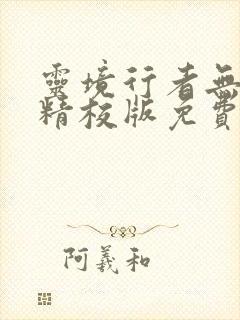 靈境行者無
精校版免費
阿義和